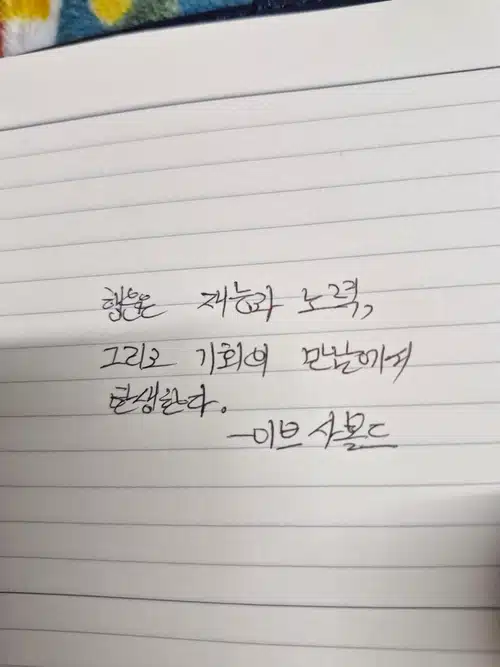 행운은 재능과 노력,
그리고 기회의 만남에서
탄생한다.
-이브 사몰드